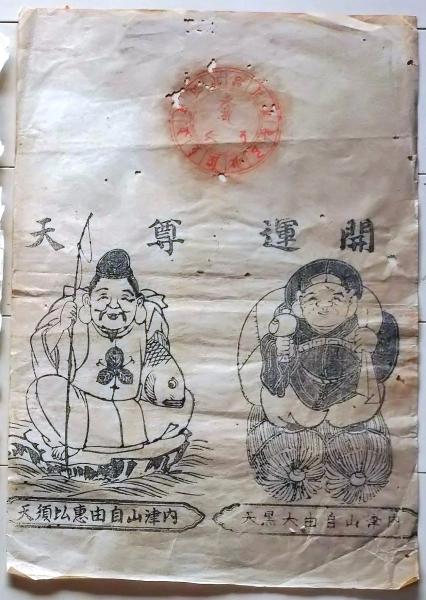 開運尊天
内津山自由大黒天
内津山自由惠比須天